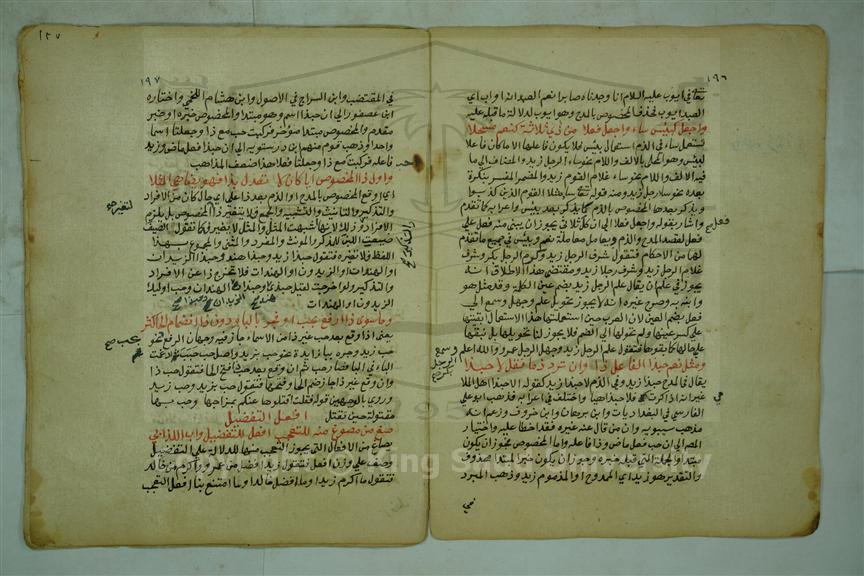 ١٩٦
تعالى في ايوب عليه السلام انا وجدناه صابرا نعم العبد انه اواب اي
العبد ايوب فحذف المخصوص بالمدح وهو ايوب لدلالة ما قبله عليه
واجعل كبئس ساء واجعل فعلا من ذي ثلاثة كنعم مسجلا
تستعمل ساء في الذم استعمال بئس فلا يكون فاعلها الا ما كان فاعلا
لبئس وهو المحلى بالالف واللام نحو ساء الرجل زيد والمضاف الى ما
فيه الالف واللام نحو ساء غلام القوم زيد والمضمر المفسر بنكرة
بعده نحو ساء رجلا زيد ومنه قوله تعالى ساء مثلا القوم الذين كذبوا
ويذكر بعدها المخصوص بالذم كما يذكر بعد بئس واعرابه كما تقدم
واشار بقوله واجعل فعلا الى ان كل ثلاثي يجوز ان يبنى منه فعل على
فعل لقصد المدح والذم ويعامل معاملة نعم وبئس في جميع ما تقدم
لها من الاحكام فتقول شرف الرجل زيد ولؤم الرجل بكر وشرف
غلام الرجل زيد وشرف رجلا زيد ومقتضى هذا الاطلاق انه
يجوز في علم ان يقال علم الرجل زيد بضم عين الكلمة وقد مثل هو
وابنه به وصرح غيره انه لا يجوز تحويل علم وجهل وسمع الى
فعل بضم العين لان العرب حين استعملتها هذا الاستعمال ابقتها
على كسر عينها ولم تحولها الى الضم فلا يجوز لنا تحويلها بل نبقيها
على حالها كما ابقوها فتقول علم الرجل زيد وجهل الرجل عمرو والله اعلم
ومثل نعم حبذا الفاعل ذا وان ترد ذما فقل لا حبذا
يقال في المدح حبذا زيد وفي الذم لا حبذا زيد كقوله الا حبذا اهل الملا
غير انه اذا ذكرت فلا حبذا هيا واختلف في اعرابه فذهب ابو علي
الفارسي في البغداديات وابن برهان وابن خروف وزعم انه
مذهب سيبويه وان من قال عنه غيره فقد اخطا عليه واختيار
المص الى ان حب فعل ماض وذا فاعله واما المخصوص فيجوز ان يكون
مبتدا والجملة التي قبله خبره ويجوز ان يكون خبرا لمبتدا محذوف
والتقدير هو زيد اي الممدوح او المذموم زيد وذهب المبرد
فعل
وسمع
الرجل
بكر
مي
في
١٩٧
في المقتضب وابن السراج في الاصول وابن هشام اللخمي واختاره
ابن عصفور الى ان حبذا اسم وهو مبتدا والمخصوص خبره او خبر
مقدم والمخصوص مبتدا مؤخر فركبت حب مع ذا وجعلتا اسما
واحدا وذهب قوم منهم ابن درستويه الى ان حبذا فعل ماض وزيد
فاعله فركبت مع ذا وجعلتا فعلا وهذا اضعف المذاهب
حب
واول ذا المخصوص ايا كان لا تعدل بذا فهو يضاهي المثلا
اي اوقع المخصوص بالمدح او الذم بعد ذا على اي حال كان من الافراد
والتذكير والتانيث والتثنية والجمع ولا تغير ذا لتغير المخصوص بل يلزم
لتغير
الافراد وذلك لانها اشبهت المثل والمثل لا يغير فكما تقول الصيف
والتذكير
ضيعت اللبن للمذكر والمونث والمفرد والمثنى والمجموع بهذا
اللفظ ولا تغيره فتقول حبذا زيد وحبذا هند وحبذا الزيدان
او الهندات او الزيدون او الهندات فلا تخرج ذا عن الافراد
والتذكير ولو اخرجت لقيل حبذي وحبذا الهندان وحب اوليك
الزيدون او الهندات
هند
الزيدان
وما سوى ذا ارفع بحب او فجر بالبا ودون ذا انضمام الحا كثر
يعني اذا وقع بعد حب غير ذا من الاسماء جاز فيه وجهان الرفع نحو
حب زيد وجره ببا زايدة نحو حب بزيد واصل حب حبب فادغمت
الباء في الباء فصار حب ثم ان وقع بعد حب ذا فتح الحا فتقول حب ذا
وان وقع غير ذا جاز ضم الحا وفتحها فتقول حب بزيد وحب زيد
وروي بالوجهين قوله فقلت اقتلوها عنكم بمزاجها وحب بها
مقتولة حين تقتل افعل التفضيل
صغ من مصوغ منه للتعجب افعل للتفضيل واب اللذ ابي
يصاغ من الافعال التي يجوز التعجب منها للدلالة على التفضيل
وصف على وزن افعل فتقول زيد افضل من عمرو واكرم من خالد
فتقول ما اكرم زيدا وما افضل خالدا وما امتنع بناء افعل التعجب